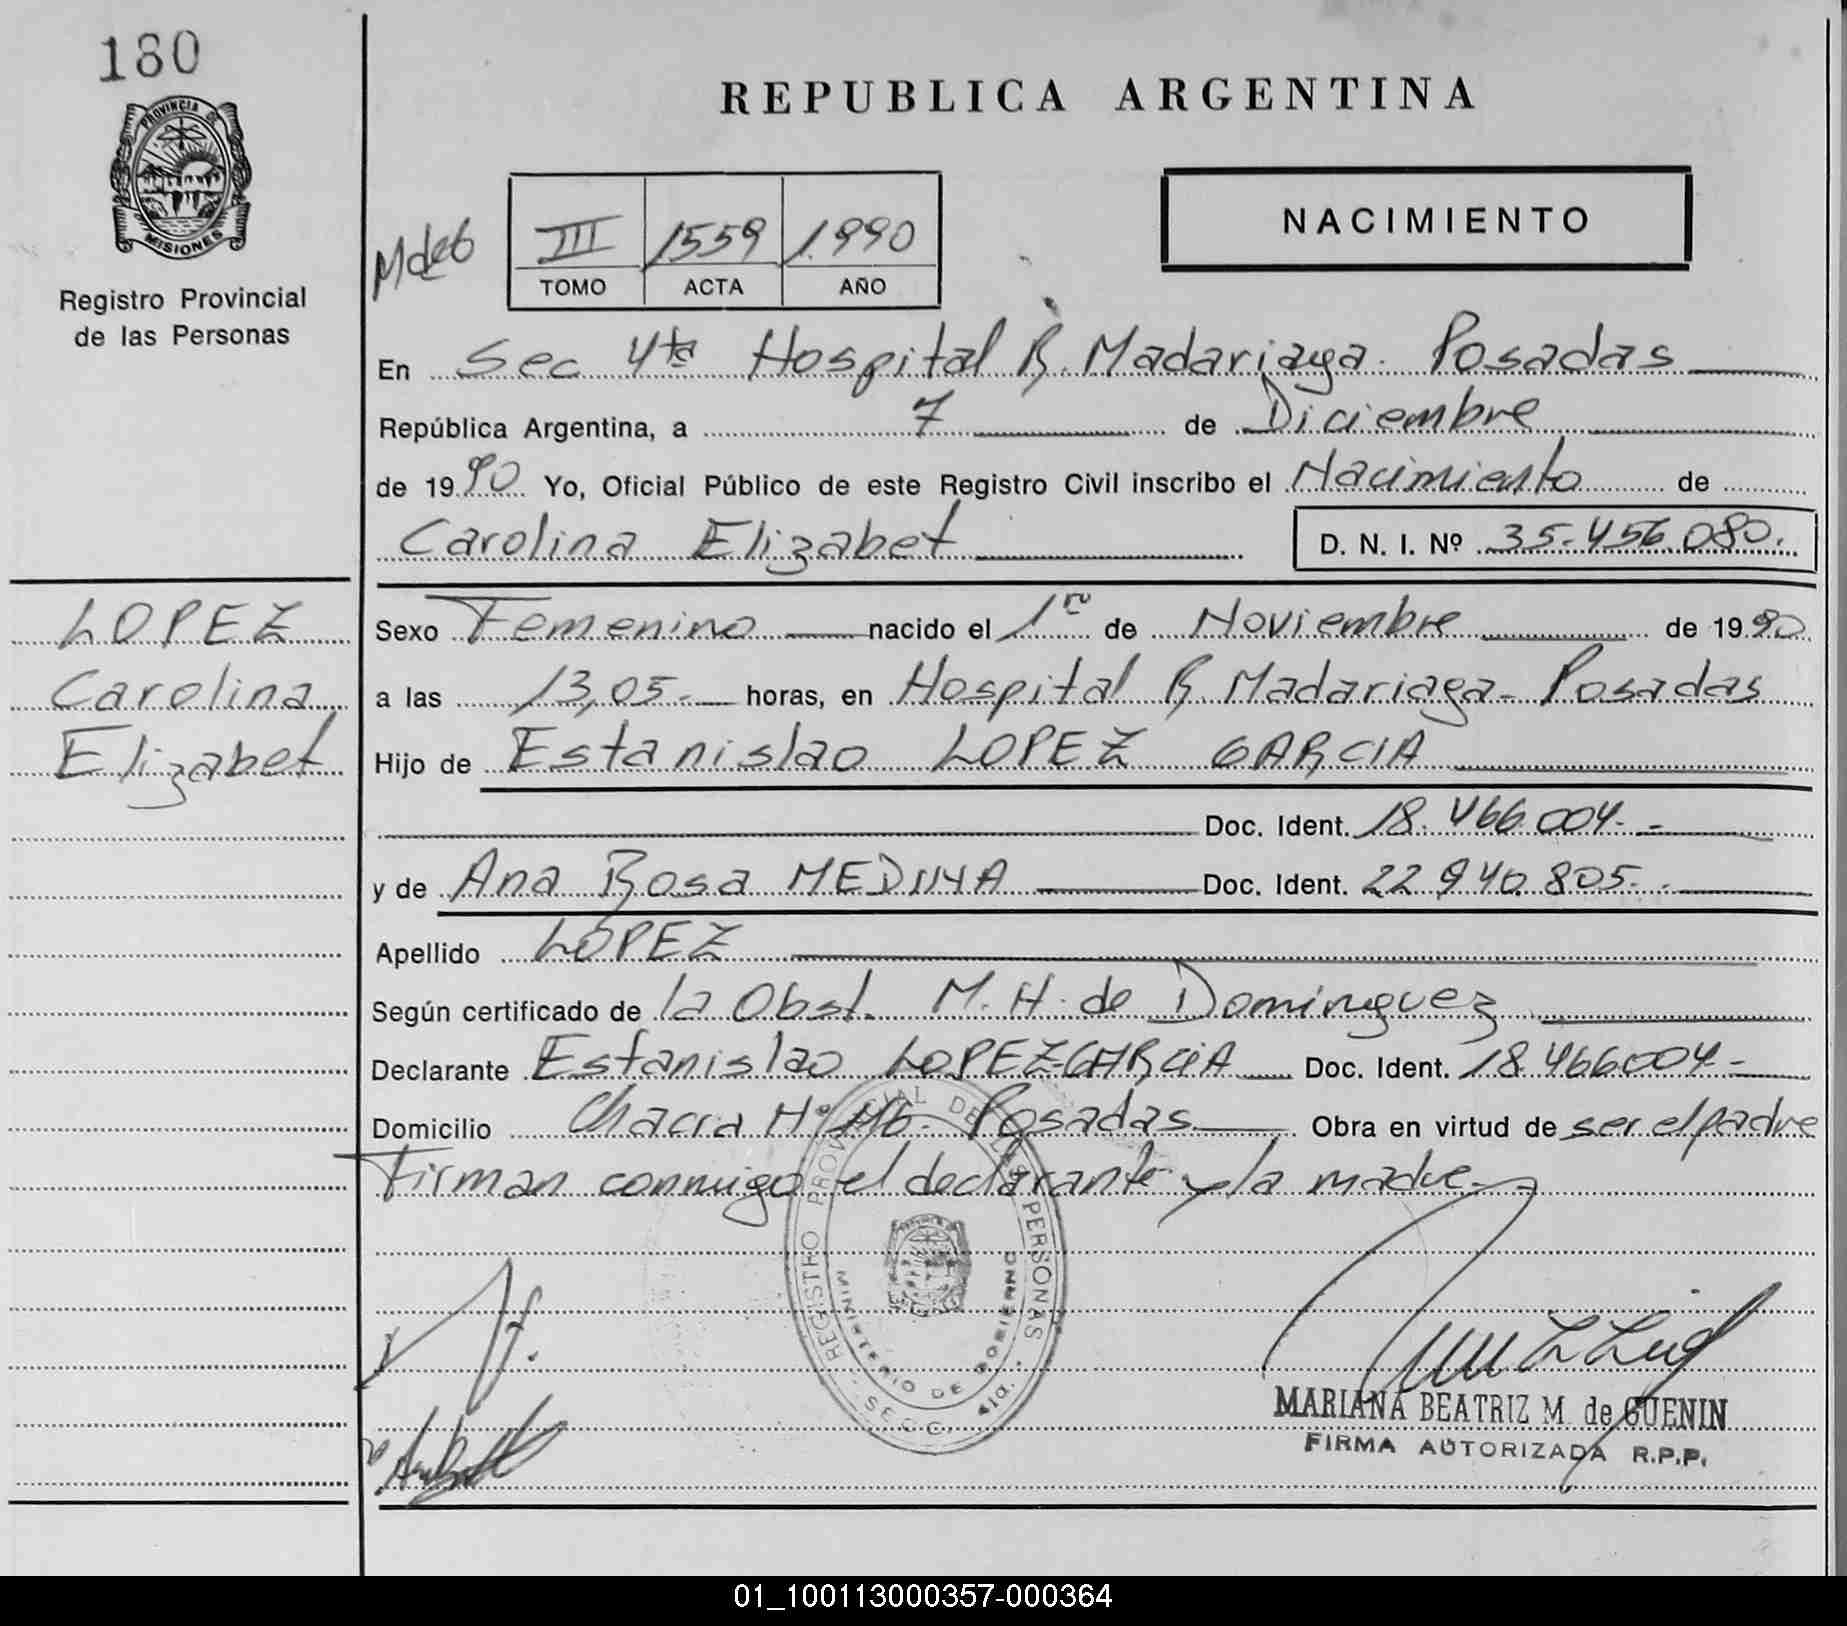 180
PROVINCIA DE
MISIONES
Registro Provincial
de las Personas
LOPEZ
Carolina
Elizabet
REPUBLICA ARGENTINA
III 1559 1.990
TOMO ACTA AÑO
NACIMIENTO
En Sec 4ta Hospital R. Madariaga. Posadas
República Argentina, a 7 de Diciembre
de 1990 Yo, Oficial Público de este Registro Civil inscribo el Nacimiento de
Carolina Elizabet D. N. I. Nº 35.456.080.
Sexo Femenino nacido el 1ro de Noviembre de 1990
a las 13,05.- horas, en Hospital R Madariaga- Posadas
Hijo de Estanislao LOPEZ GARCIA
Doc. Ident. 18.466.004.-
y de Ana Rosa MEDINA Doc. Ident. 22 940.805.-
Apellido LOPEZ
Según certificado de la Obst. M. H. de Dominguez
Declarante Estanislao LOPEZ-GARCIA Doc. Ident. 18.466004-
Domicilio Chacra Nº 146. Posadas Obra en virtud de ser el padre
Firman conmigo el declarante y la madre.
REGISTRO PROVINCIAL DE LAS PERSONAS
MINISTERIO DE GOBIERNO
SECC. 4ta.
MARIANA BEATRIZ M. de GUENIN
FIRMA AUTORIZADA R.P.P.
01_100113000357-000364